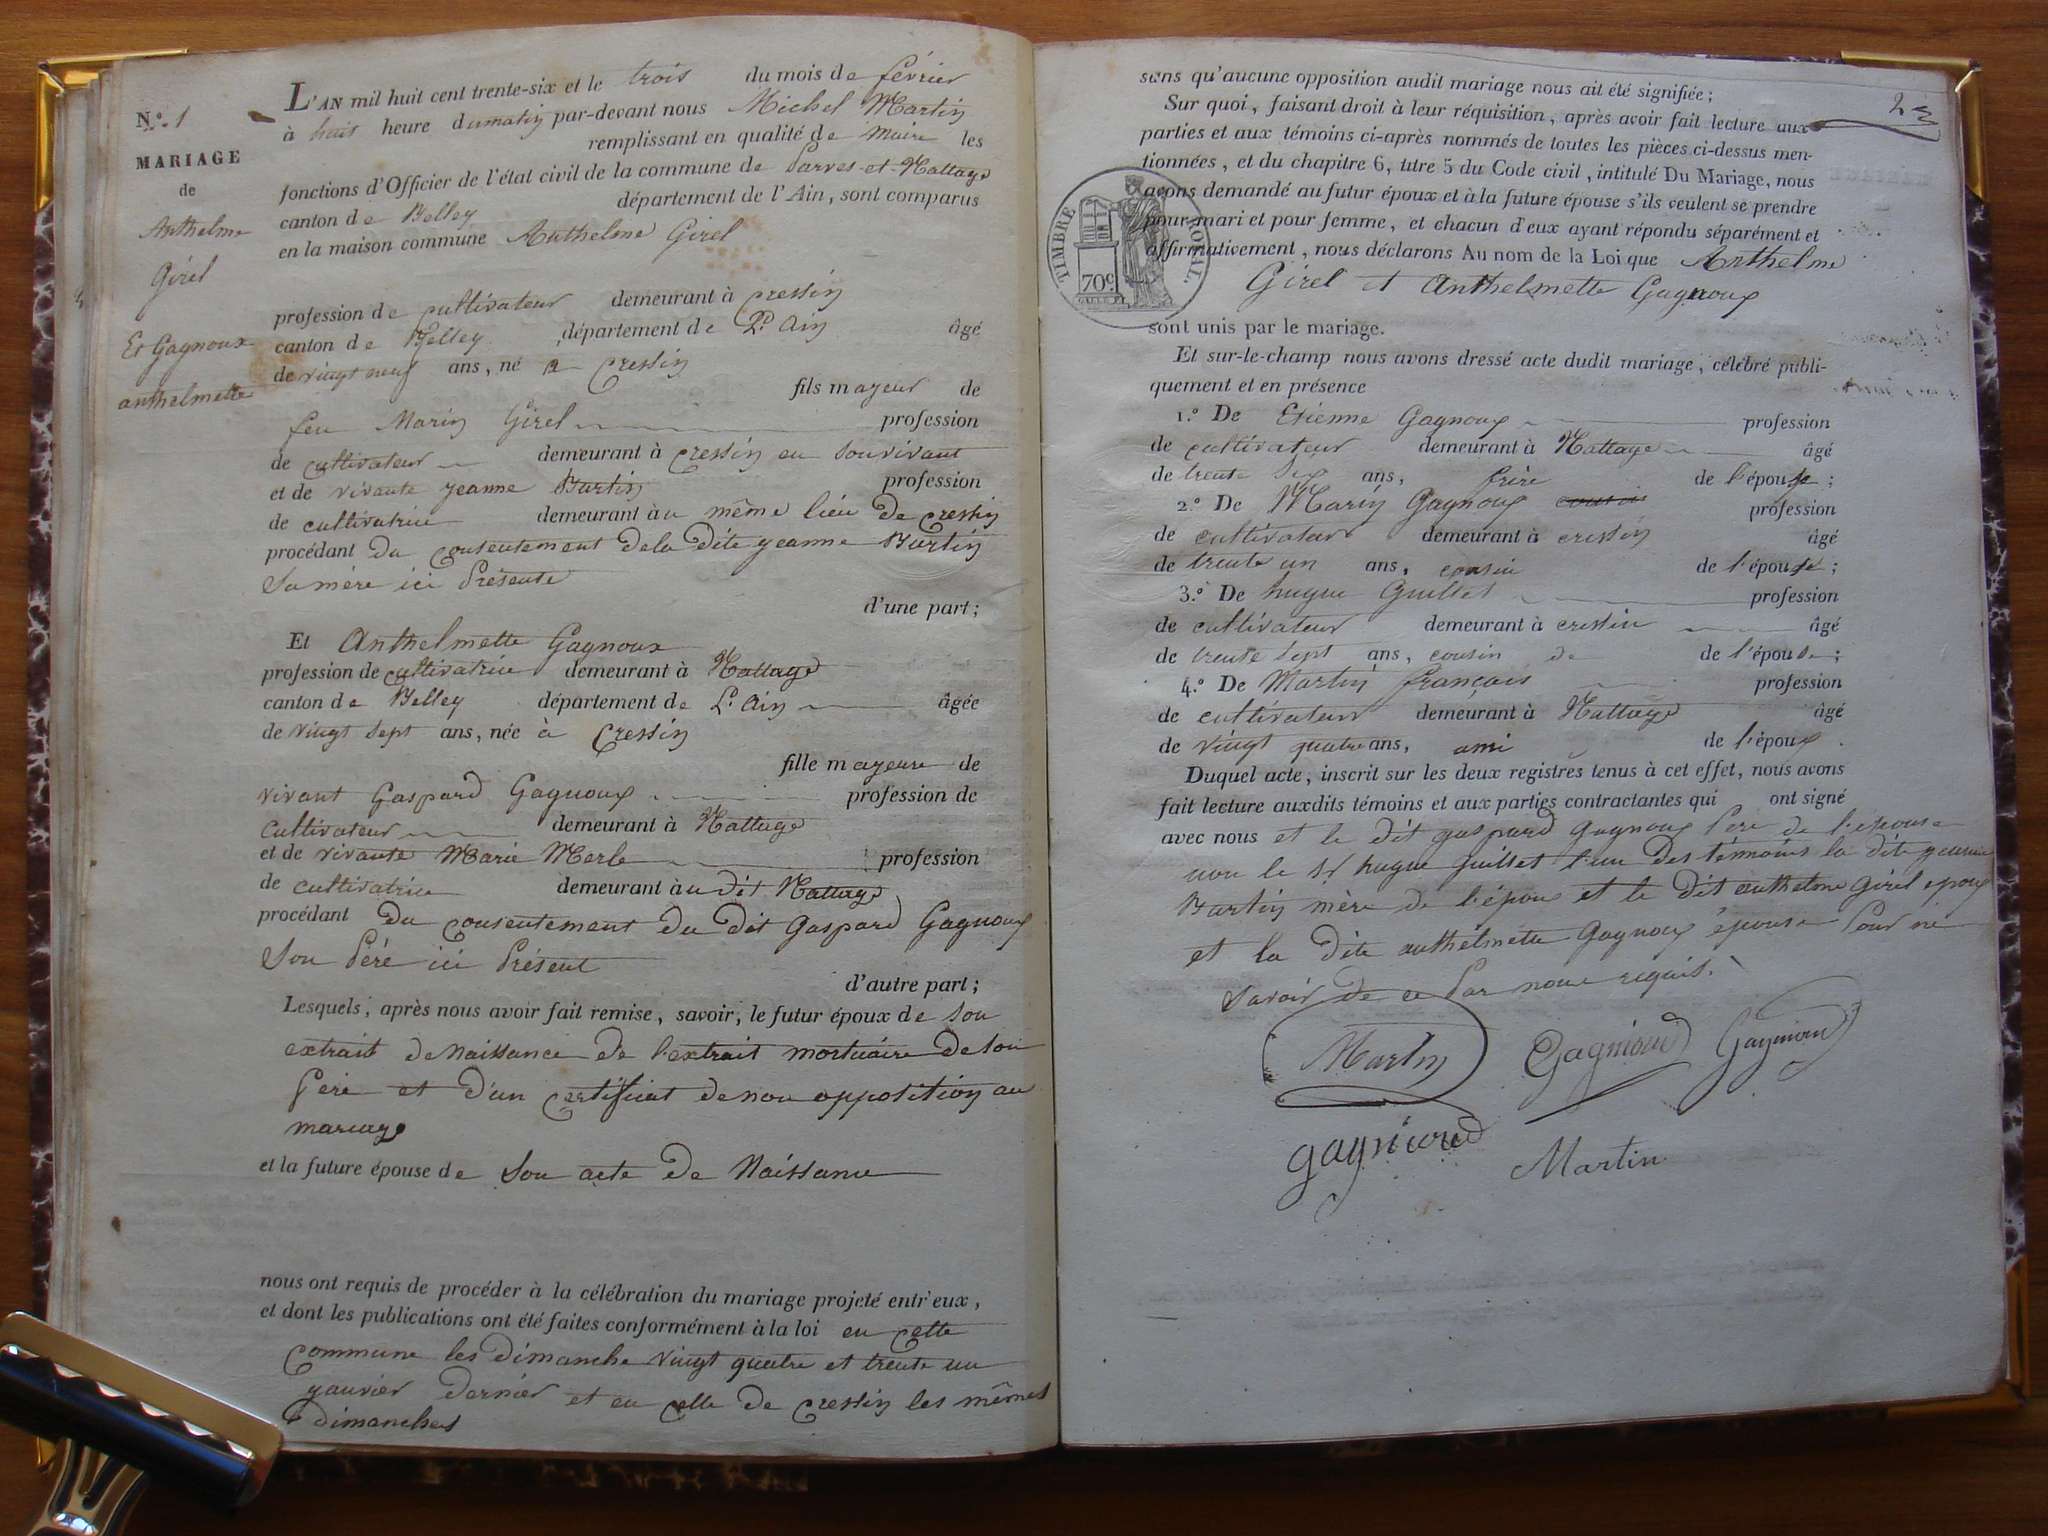 N.º 1
MARIAGE
de
Anthelme
Girel
Et Gagnoux
anthelmette
L'AN mil huit cent trente-six et le trois du mois de février
à huit heure du matin par-devant nous Michel Martin
remplissant en qualité de Maire les
fonctions d'Officier de l'état civil de la commune de Parves-et-Nattage
canton de Belley département de l'Ain, sont comparus
en la maison commune Anthelme Girel
profession de cultivateur demeurant à cressin
canton de Belley département de L'Ain âgé
de vingt neuf ans, né a Cressin
fils mayeur de
feu Marin Girel profession
de cultivateur demeurant à cressin en souvivant
et de vivante jeanne Burtin profession
de cultivatrice demeurant àu même lieu de cressin
procédant du consentement de la dite jeanne Burtin
Sa mère ici Présente
d'une part;
Et Anthelmette Gagnoux
profession de cultivatrice demeurant à Nattage
canton de Belley département de L'Ain âgée
de vingt sept ans, née à Cressin
fille mayeure de
vivant Gaspard Gagnoux profession de
Cultivateur demeurant à Nattage
et de vivante Marie Merle profession
de cultivatrice demeurant àu dit Nattage
procédant du consentement du dit Gaspard Gagnoux
Son Péré ici Présent
d'autre part;
Lesquels, après nous avoir fait remise, savoir, le futur époux de Son
extrait de Naissance de l'extrait mortuaire de Son
Pére et d'un certificat de non opposition au
mariage
et la future épouse de Son acte de Naissance
nous ont requis de procéder à la célébration du mariage projeté entr'eux,
et dont les publications ont été faites conformément à la loi en cette
commune les dimanche vingt quatre et trente un
janvier dernier et en celle de cressin les mêmes
dimanches
2
sans qu'aucune opposition audit mariage nous ait été signifiée;
Sur quoi, faisant droit à leur réquisition, après avoir fait lecture aux
parties et aux témoins ci-après nommés de toutes les pièces ci-dessus men-
tionnées, et du chapitre 6, titre 5 du Code civil, intitulé Du Mariage, nous
avons demandé au futur époux et à la future épouse s'ils veulent se prendre
pour mari et pour femme, et chacun d'eux ayant répondu séparément et
affirmativement, nous déclarons Au nom de la Loi que Anthelme
Girel et Anthelmette Gagnoux
TIMBRE ROYAL.
70c.
sont unis par le mariage.
Et sur-le-champ nous avons dressé acte dudit mariage, célébré publi-
quement et en présence
1.º De Etienne Gagnoux profession
de cultivateur demeurant à Nattage âgé
de trente six ans, frère de l'épouse;
2.º De Marin Gagnoux cousin profession
de cultivateur demeurant à cressin âgé
de trente un ans, cousin de l'épouse;
3.º De hugue Guillet profession
de cultivateur demeurant à cressin âgé
de trente sept ans, cousin de de l'épouse;
4.º De Martin français profession
de cultivateur demeurant à Nattage âgé
de vingt quatre ans, ami de l'époux.
Duquel acte, inscrit sur les deux registres tenus à cet effet, nous avons
fait lecture auxdits témoins et aux parties contractantes qui ont signé
avec nous et le dit gaspard Gagnoux Pere de l'epouse
non le Sr hugue guillet l'un Des témoins la dite jeanne
Burtin mère de l'époux et le Dit anthelme Girel epoux
et la Dite anthelmette Gagnoux épouse Pour ne
Savoir de ce Par nous requis.
Martin Gagnioud Gagnioud
gagnioud
Martin